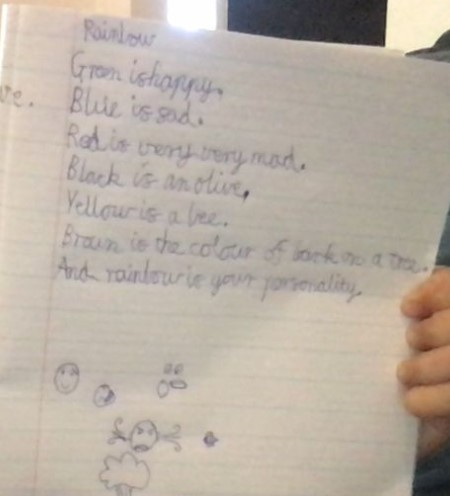 Rainbow
Green is happy.
ve.
Blue is sad.
Red is very very mad.
Black is an olive,
Yellow is a bee.
Brown is the colour of bark on a tree.
And rainbow is your personality.